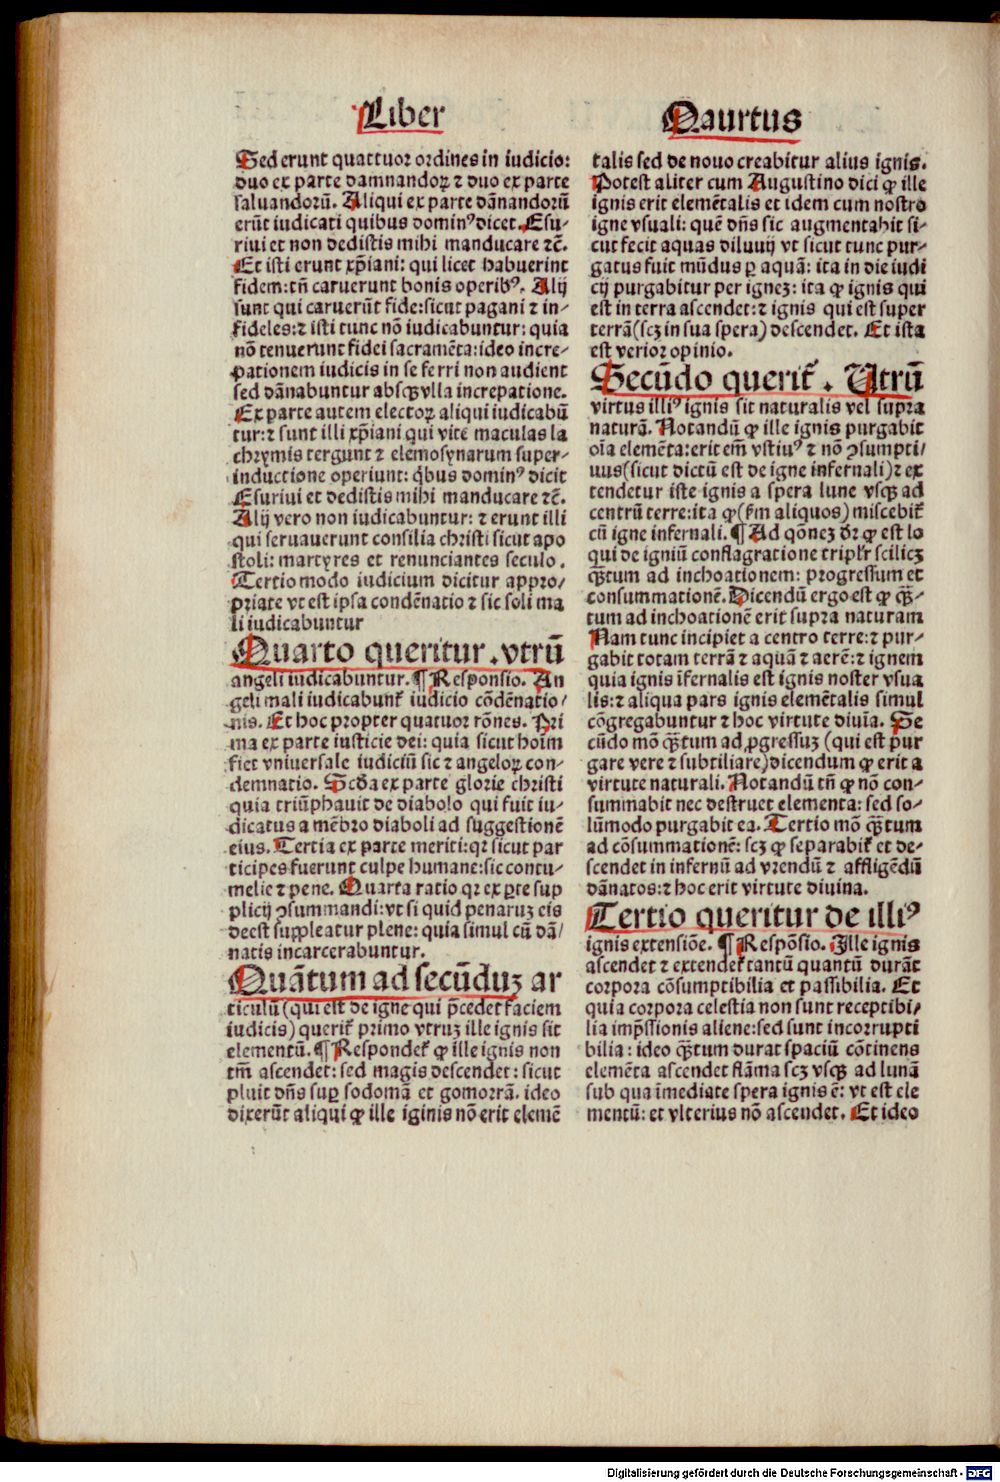 Liber Qaurtus
Sed erunt quattuor ordines in iudicio:
duo ex parte damnandoꝝ ⁊ duo ex parte
saluandorū. Aliqui ex parte dānandorū
erūt iudicati quibus dominꝰ dicet. Esu-
riui et non dedistis mihi manducare ⁊c̄.
Et isti erunt xp̄iani: qui licet habuerint
fidem: tn̄ caruerunt bonis operibꝰ. Alij
sunt qui caruerūt fide: sicut pagani ⁊ in-
fideles: ⁊ isti tunc nō iudicabuntur: quia
nō tenuerunt fidei sacramēta: ideo incre-
pationem iudicis in se ferri non audient
sed dānabuntur absqꝫ vlla increpatione.
Ex parte autem electoꝝ aliqui iudicabū
tur: ⁊ sunt illi xp̄iani qui vite maculas la
chrymis tergunt ⁊ elemosynarum super-
inductione operiunt: qͥbus dominꝰ dicit
Esuriui et dedistis mihi manducare ⁊c̄.
Alij vero non iudicabuntur: ⁊ erunt illi
qui seruauerunt consilia christi sicut apo
stoli: martyres et renunciantes seculo.
Tertio modo iudicium dicitur appro-
priate vt est ipsa condēnatio ⁊ sic soli ma
li iudicabuntur
Quarto queritur. vtrū
angeli iudicabuntur. ¶ Responsio. An
geli mali iudicabunt᷑ iudicio cōdēnatio-
nis. Et hoc propter quatuor rōnes. Pri
ma ex parte iusticie dei: quia sicut hoīm
fiet vniuersale iudiciū sic ⁊ angeloꝝ con-
demnatio. Scd̄a ex parte glorie christi
quia triūphauit de diabolo qui fuit iu-
dicatus a mēbro diaboli ad suggestionē
eius. Tertia ex parte meriti: qꝛ sicut par
ticipes fuerunt culpe humane: sic contu-
melie ⁊ pene. Quarta ratio qꝛ ex ꝑte sup
plicij ꝯsummandi: vt si quid penaruꝫ eis
deest suppleatur plene: quia simul cū dā-
natis incarcerabuntur.
Quātum ad secūduꝫ ar
ticulū (qui est de igne qui p̄cedet faciem
iudicis) querit᷑ primo vtruꝫ ille ignis sit
elementū. ¶ Respondet᷑ ꝙ ille ignis non
tm̄ ascendet: sed magis descendet: sicut
pluit dn̄s suꝑ sodomā et gomorrā. ideo
dixerūt aliqui ꝙ ille iginis nō erit elemē
talis sed de nouo creabitur alius ignis.
Potest aliter cum Augustino dici ꝙ ille
ignis erit elemētalis et idem cum nostro
igne vsuali: quē dn̄s sic augmentabit si-
cut fecit aquas diluuij vt sicut tunc pur-
gatus fuit mūdus ꝑ aquā: ita in die iudi
cij purgabitur per igneꝫ: ita ꝙ ignis qui
est in terra ascendet: ⁊ ignis qui est super
terrā (scꝫ in sua spera) descendet. Et ista
est verior opinio.
Secūdo querit᷑. Utrū
virtus illiꝰ ignis sit naturalis vel supra
naturā. Notandū ꝙ ille ignis purgabit
oīa elemēta: erit em̄ vstiuꝰ ⁊ nō ꝯsumpti-
uus (sicut dictū est de igne infernali) ⁊ ex
tendetur iste ignis a spera lune vsqꝫ ad
centrū terre: ita ꝙ (fm̄ aliquos) miscebit᷑
cū igne infernali. ¶ Ad qōneꝫ dr̄ ꝙ est lo
qui de igniū conflagratione triplr̄ scilicꝫ
qꝫ̄tum ad inchoationem: progressum et
consummationē. Dicendū ergo est ꝙ qꝫ̄-
tum ad inchoationē erit supra naturam
Nam tunc incipiet a centro terre: ⁊ pur-
gabit totam terrā ⁊ aquā ⁊ aerē: ⁊ ignem
quia ignis īfernalis est ignis noster vsua
lis: ⁊ aliqua pars ignis elemētalis simul
cōgregabuntur ⁊ hoc virtute diuīa. Se
cūdo mō qꝫ̄tum ad ꝓgressuꝫ (qui est pur
gare vere ⁊ subtiliare) dicendum ꝙ erit a
virtute naturali. Notandū tn̄ ꝙ nō con-
summabit nec destruet elementa: sed so-
lūmodo purgabit ea. Tertio mō qꝫ̄tum
ad cōsummationē: scꝫ ꝙ separabit᷑ et de-
scendet in infernū ad vrendū ⁊ affligēdū
dānatos: ⁊ hoc erit virtute diuina.
Tertio queritur de illiꝰ
ignis extensiōe. ¶ Respōsio. Ille ignis
ascendet ⁊ extendet᷑ tantū quantū durāt
corpora cōsumptibilia et passibilia. Et
quia corpora celestia non sunt receptibi-
lia imp̄ssionis aliene: sed sunt incorrupti
bilia: ideo qꝫ̄tum durat spaciū cōtinens
elemēta ascendet flāma scꝫ vsqꝫ ad lunā
sub qua īmediate spera ignis ē: vt est ele
mentū: et vlterius nō ascendet. Et ideo
Digitalisierung gefördert durch die Deutsche Forschungsgemeinschaft - DFG